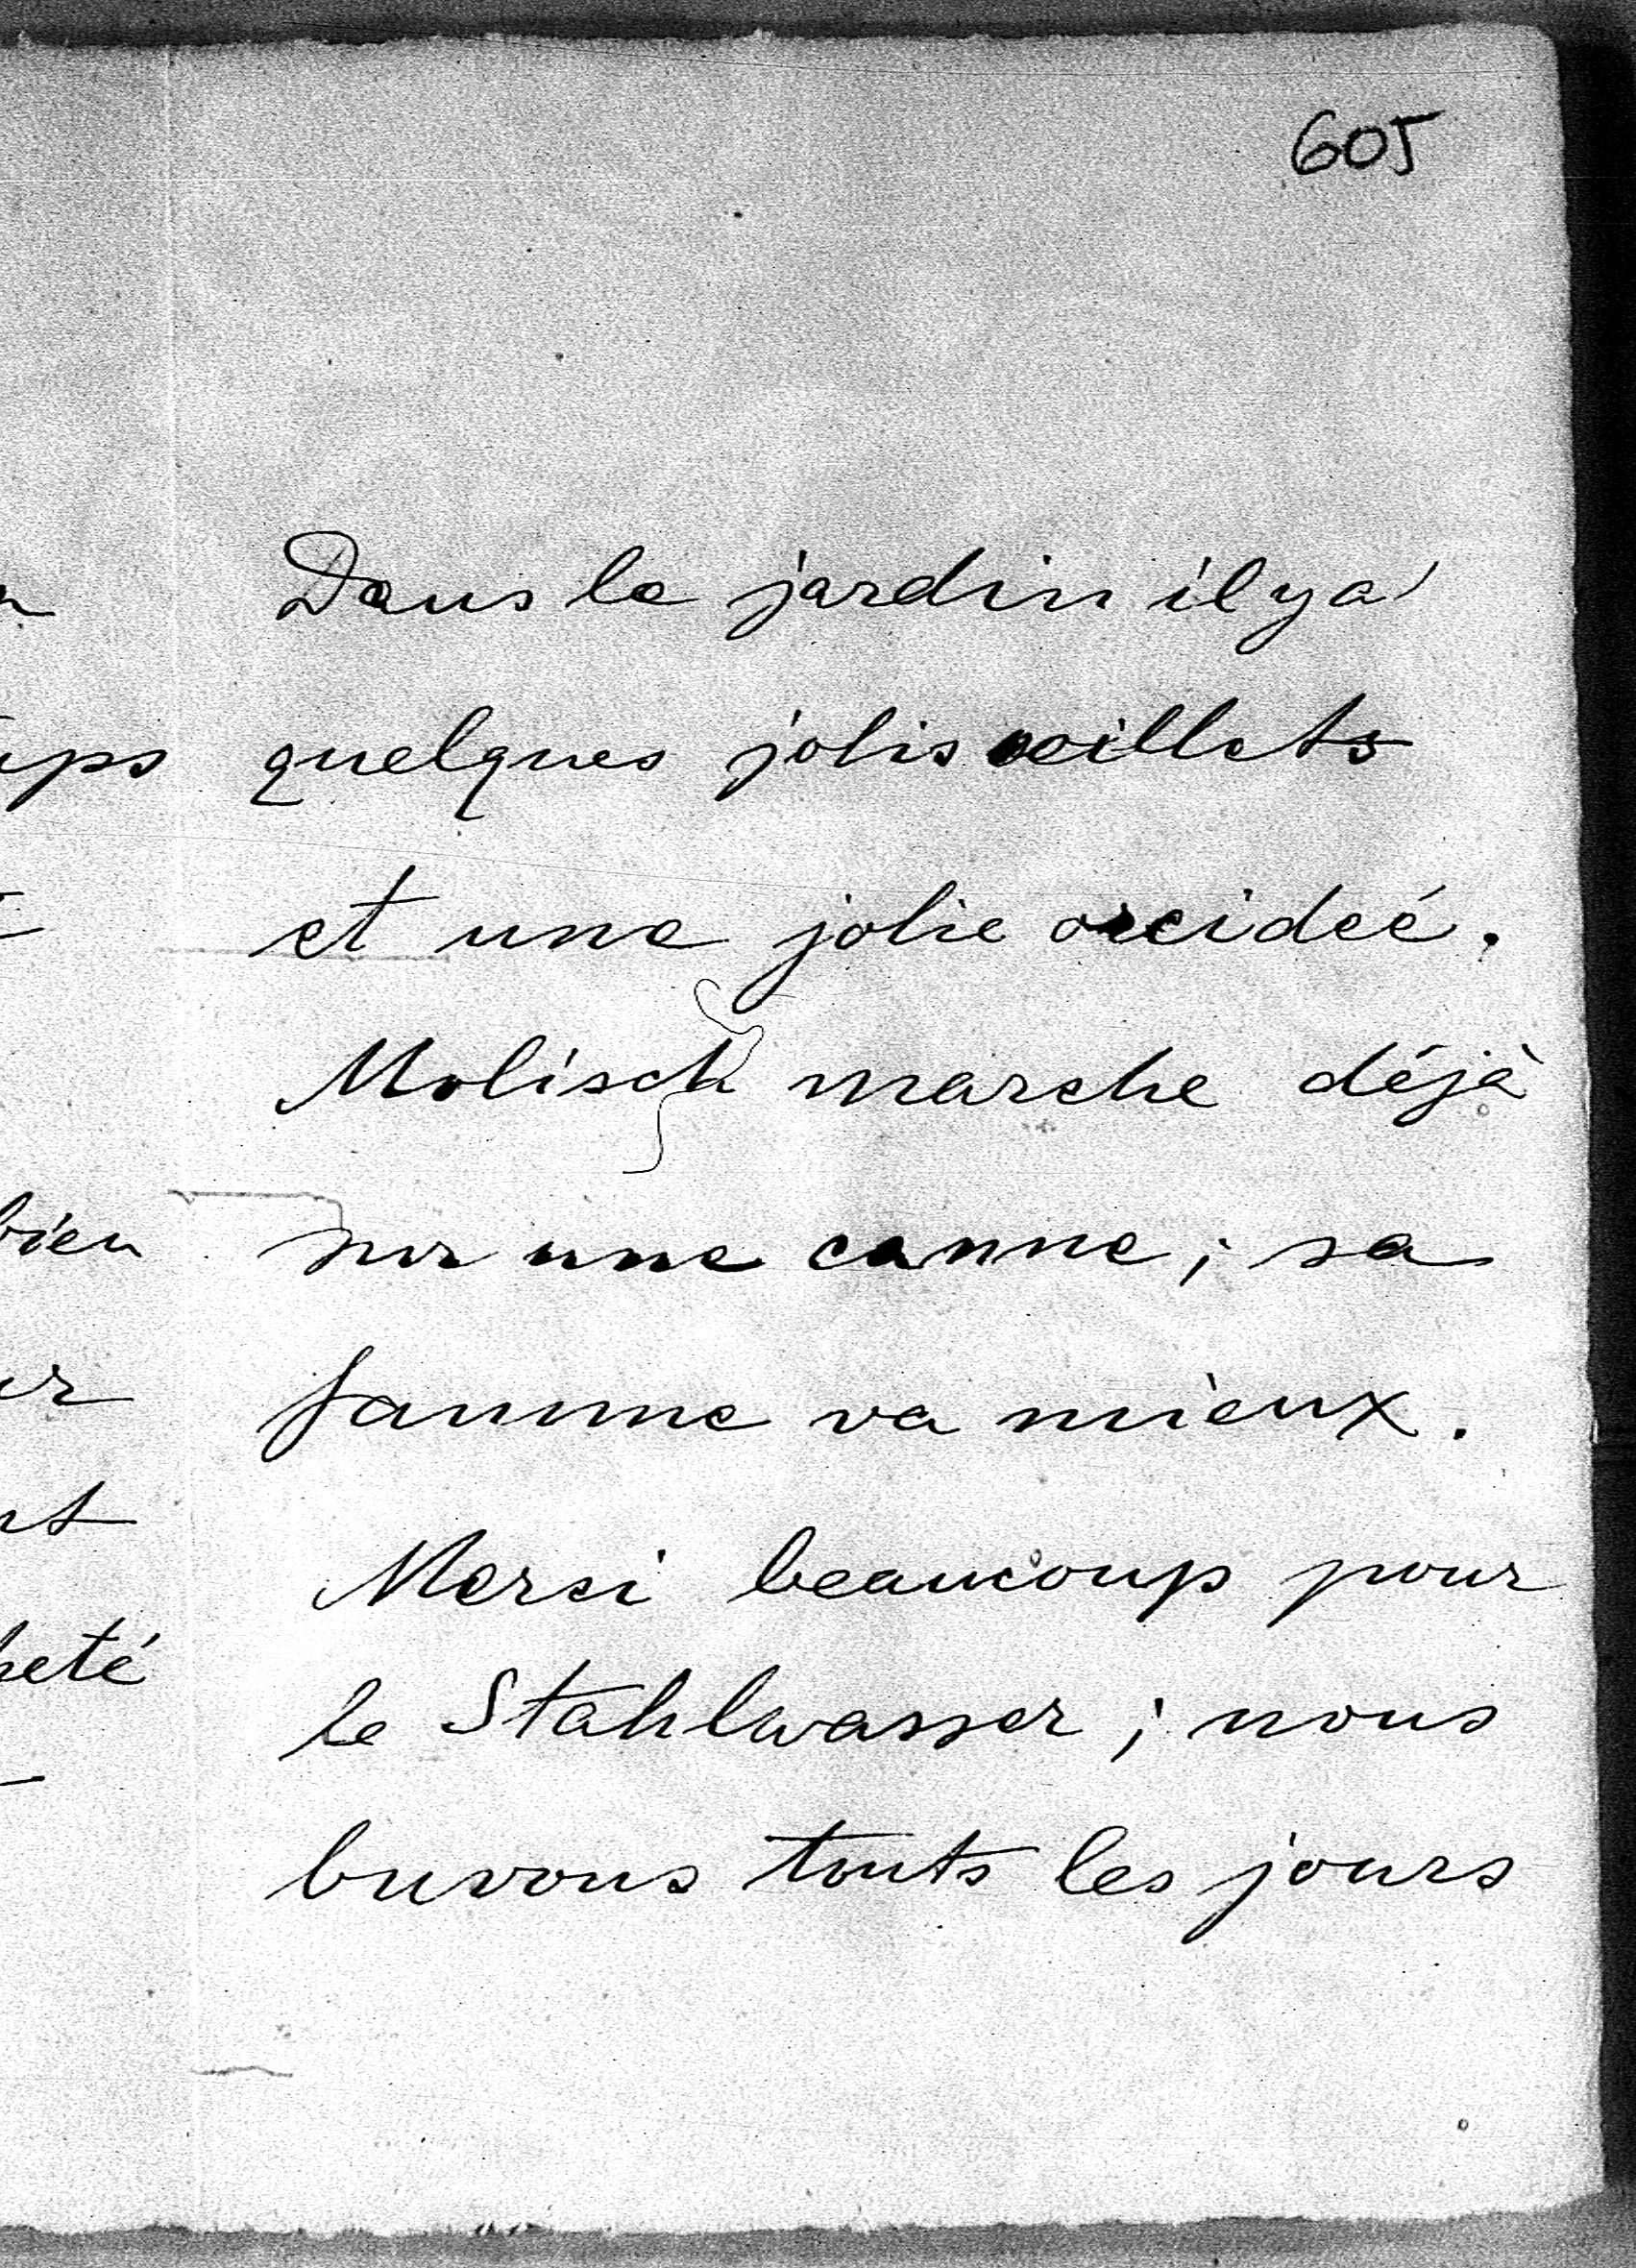 605
Dans le jardin il ya
quelques jolis oeillets
et une jolie orcideé.
Molisch marche déjà
sur une canne; sa
famme va mieux.
Mersi beaucoup pour
le Stahlwasser; nous
buvons touts les jours
ups
bien